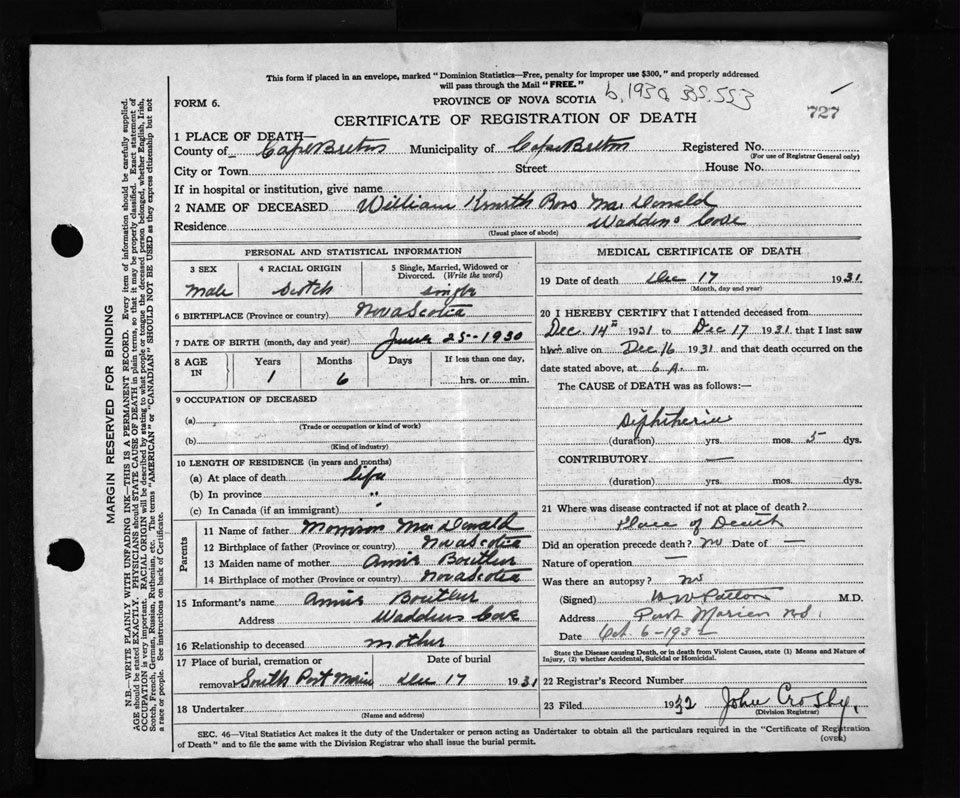 This form if placed in an envelope, marked "Dominion Statistics—Free, penalty for improper use $300," and properly addressed
will pass through the Mail "FREE."
FORM 6.
PROVINCE OF NOVA SCOTIA b, 1930, 335, 553
727
CERTIFICATE OF REGISTRATION OF DEATH
1 PLACE OF DEATH—
County of Cape Breton Municipality of Cape Breton Registered No.
(For use of Registrar General only)
City or Town Street House No.
If in hospital or institution, give name
2 NAME OF DECEASED William Ross MacDonald
Residence Waddens Cove
(Usual place of abode)
PERSONAL AND STATISTICAL INFORMATION
3 SEX 4 RACIAL ORIGIN 5 Single, Married, Widowed or Divorced. (Write the word)
male Scotch single
6 BIRTHPLACE (Province or country) Nova Scotia
7 DATE OF BIRTH (month, day and year) June 25 - 1930
8 AGE IN Years Months Days If less than one day,
1 6 hrs. or min.
9 OCCUPATION OF DECEASED
(a)
(Trade or occupation or kind of work)
(b)
(Kind of industry)
10 LENGTH OF RESIDENCE (in years and months)
(a) At place of death life
(b) In province "
(c) In Canada (if an immigrant) "
Parents
11 Name of father Morrison MacDonald
12 Birthplace of father (Province or country) Nova Scotia
13 Maiden name of mother Annie Boutlier
14 Birthplace of mother (Province or country) Nova Scotia
15 Informant's name Annie Boutlier
Address Waddens Cove
16 Relationship to deceased mother
17 Place of burial, cremation or Date of burial
removal South Port Morien Dec 17 1931
18 Undertaker
(Name and address)
MEDICAL CERTIFICATE OF DEATH
19 Date of death Dec 17 1931
(Month, day and year)
20 I HEREBY CERTIFY that I attended deceased from
Dec. 14th 1931 to Dec 17 1931 that I last saw
him alive on Dec 16 1931 and that death occurred on the
date stated above, at 6 A. m.
The CAUSE of DEATH was as follows:—
Diphtheria
(duration) yrs. mos. 5 dys.
CONTRIBUTORY —
(duration) yrs. mos. dys.
21 Where was disease contracted if not at place of death?
Place of Death
Did an operation precede death? no Date of —
Nature of operation —
Was there an autopsy? no
(Signed) M.D.
Address Port Morien N.S.
Date Oct. 6 - 1932
State the Disease causing Death, or in death from Violent Causes, state (1) Means and Nature of Injury, (2) whether Accidental, Suicidal or Homicidal.
22 Registrar's Record Number
23 Filed 1932 John Crosby.
(Division Registrar)
SEC. 46—Vital Statistics Act makes it the duty of the Undertaker or person acting as Undertaker to obtain all the particulars required in the "Certificate of Registration
of Death" and to file the same with the Division Registrar who shall issue the burial permit.
(OVER)
MARGIN RESERVED FOR BINDING
N.B.—WRITE PLAINLY WITH UNFADING INK—THIS IS A PERMANENT RECORD. Every item of information should be carefully supplied.
AGE should be stated EXACTLY. PHYSICIANS should STATE CAUSE OF DEATH in plain terms, so that it may be properly classified. Exact statement of
OCCUPATION is very important. RACIAL ORIGIN will be described by stating to what people or tongue the deceased person belonged, whether English, Irish,
Scotch, French, German, Russian, Ruthenian, etc. The terms "AMERICAN" or "CANADIAN" SHOULD NOT BE USED as they express citizenship but not
a race or people. See instructions on back of Certificate.